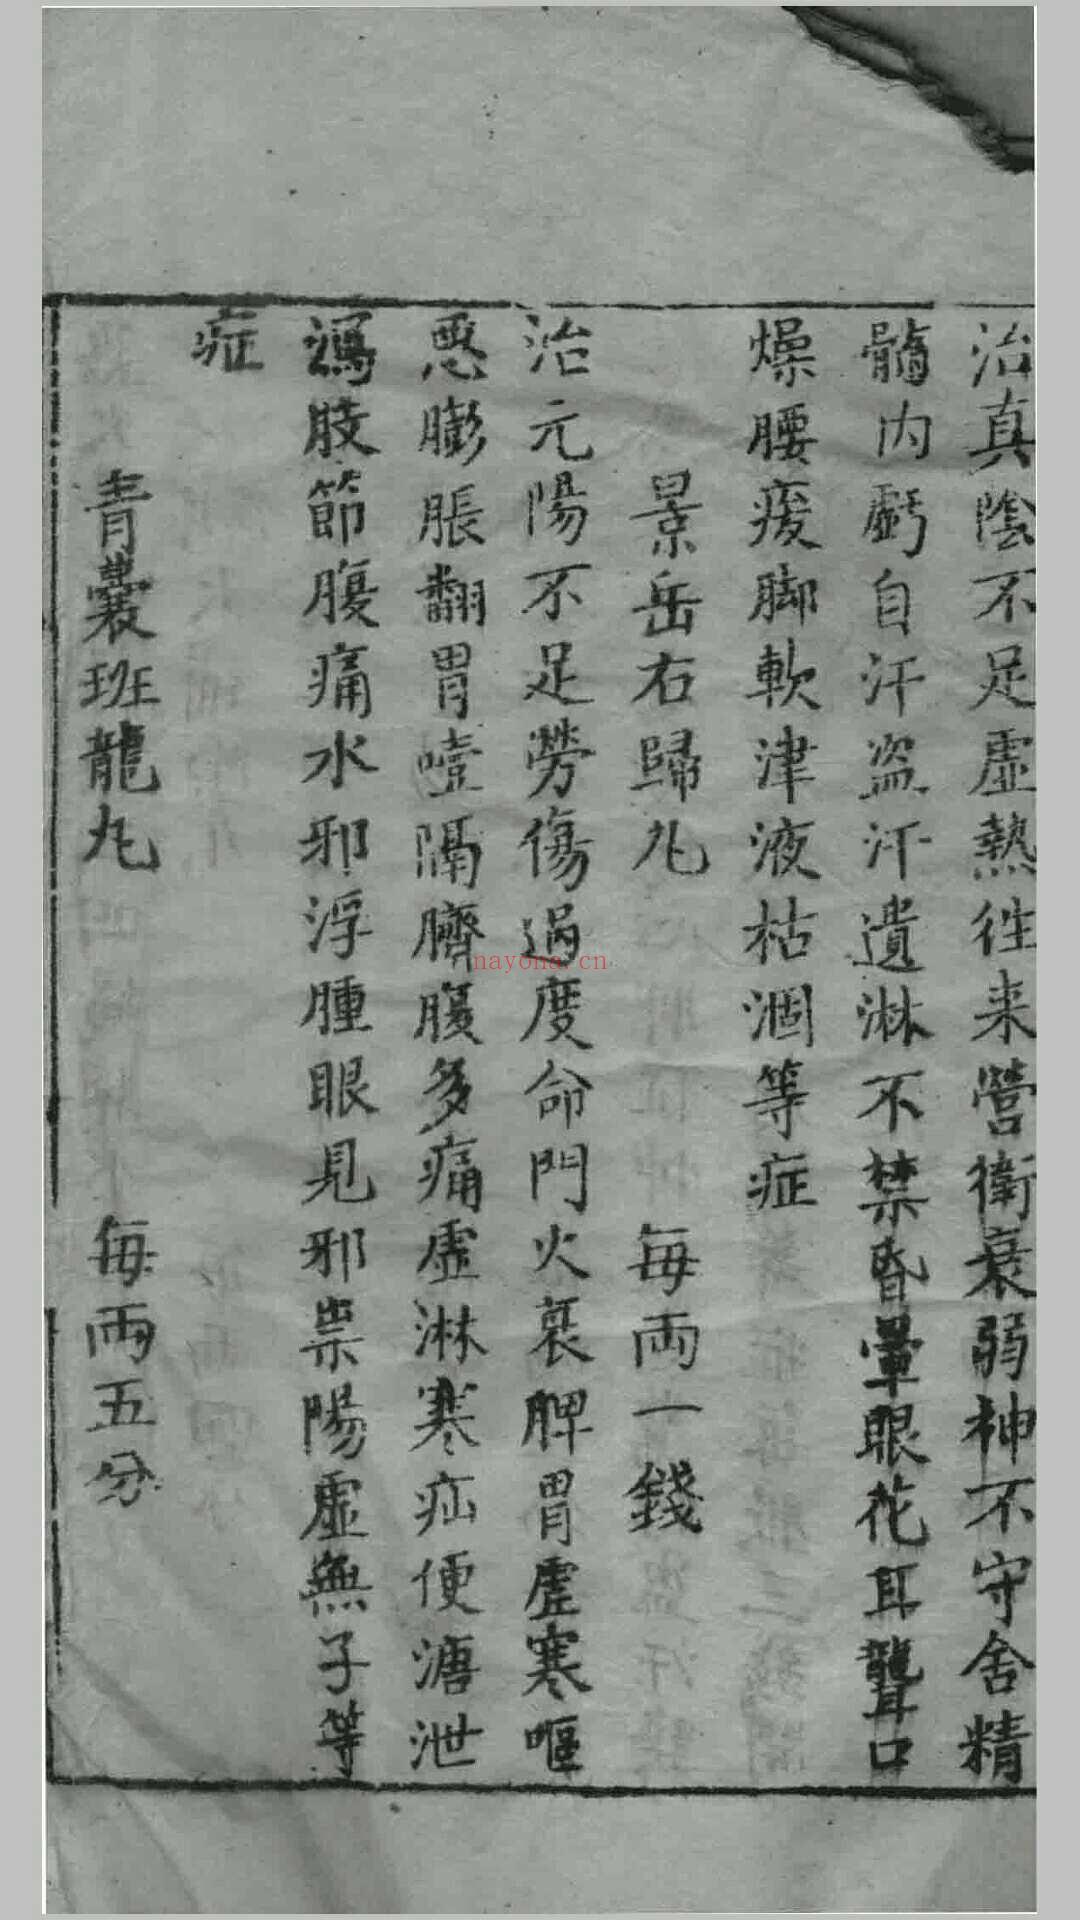 治真陰不足虛熱往来營衛衰弱神不守舍精
髓内虧自汗盗汗遺淋不禁昏暈眼花耳聾口
燥腰痠脚軟津液枯涸等症
景岳右歸丸 每両一錢
治元陽不足勞傷過度命門火衰脾胃虛寒嘔
惡膨脹翻胃噎隔臍腹多痛虛淋寒疝便溏泄
瀉肢節腹痛水邪浮腫眼見邪祟陽虛無子等
症
青囊班龍丸 每両五分
nayona.cn